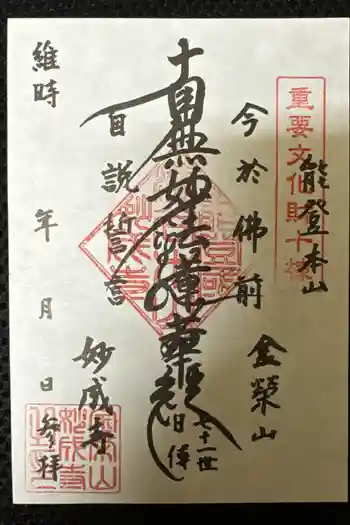 重要文化財十棟
能登本山
金榮山
今於佛前
南無妙法蓮華経
七十一世
日倖
自説誓言
妙成寺
維時 年 月 日 参拝